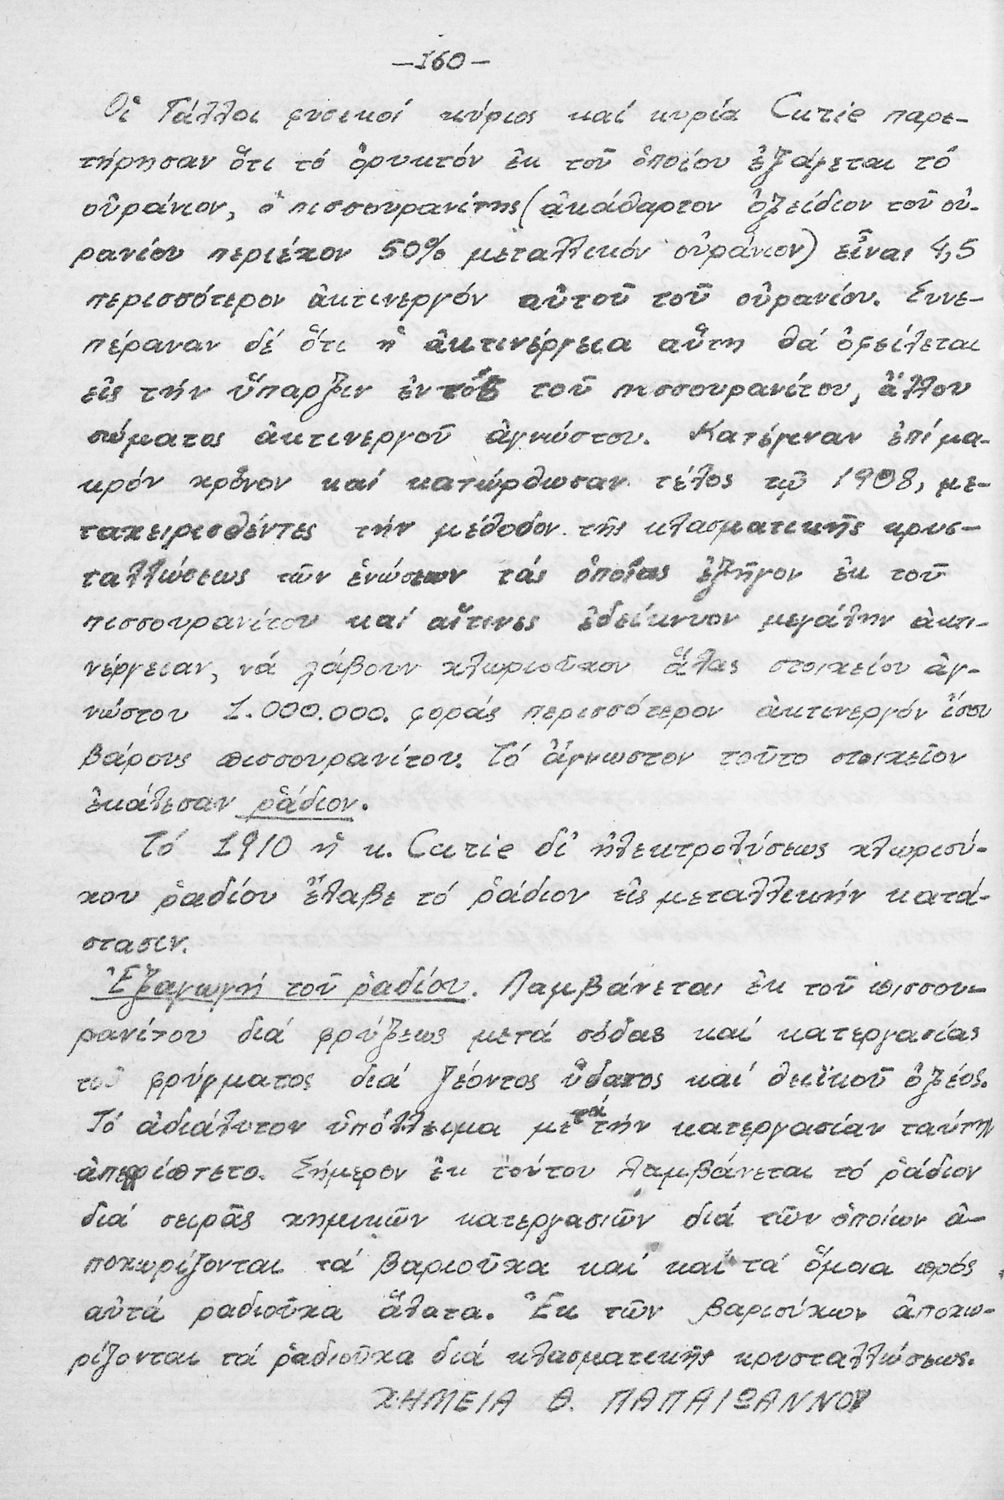 —160—
Οἱ Γάλλοι φυσικοί κύριος καί κυρία Curie παρε-
τήρησαν ὅτι τό ὀρυκτόν ἐκ τοῦ ὁποίου ἐξάγεται τό
οὐράνιον, ὁ πισσουρανίτης (ἀκάθαρτον ὀξείδιον τοῦ οὐ-
ρανίου περιέχον 50% μεταλλικόν οὐράνιον) εἶναι 4,5
περισσότερον ἀκτινεργόν αὐτοῦ τοῦ οὐρανίου. Συνε-
πέραναν δέ ὅτι ἡ ἀκτινέργεια αὕτη θά ὀφείλεται
εἰς τήν ὕπαρξιν ἐντός τοῦ πισσουρανίτου, ἄλλου
σώματος ἀκτινεργοῦ ἀγνώστου. Κατέγιναν ἐπί μα-
κρόν χρόνον καί κατώρθωσαν τέλος τῷ 1908, με-
ταχειρισθέντες τήν μέθοδον τῆς κλασματικῆς κρυσ-
ταλλώσεως τῶν ἑνώσεων τάς ὁποίας ἐξῆγον ἐκ τοῦ
πισσουρανίτου καί αἵτινες ἐδείκνυον μεγάλην ἀκτι-
νέργειαν, νά λάβουν χλωριοῦχον ἅλας στοιχείου ἀγ-
νώστου 1.000.000. φοράς περισσότερον ἀκτινεργόν ἴσου
βάρους πισσουρανίτου. Τό ἄγνωστον τοῦτο στοιχεῖον
ἐκάλεσαν ῥάδιον.
Τό 1910 ἡ κ. Curie δι' ἠλεκτρολύσεως χλωριού-
χου ῥαδίου ἔλαβε τό ῥάδιον εἰς μεταλλικήν κατά-
στασιν.
Ἐξαγωγή τοῦ ῥαδίου. Λαμβάνεται ἐκ τοῦ πισσου-
ρανίτου διά φρύξεως μετά σόδας καί κατεργασίας
τοῦ φρύγματος διά ζέοντος ὕδατος καί θειϊκοῦ ὀξέος.
Τό ἀδιάλυτον ὑπόλλειμα μετά τήν κατεργασίαν ταύτην
ἀπερρίπτετο. Σήμερον ἐκ τούτου λαμβάνεται τό ῥάδιον
διά σειρᾶς χημικῶν κατεργασιῶν διά τῶν ὁποίων ἀ-
ποχωρίζονται τά βαριοῦχα καί καί τά ὅμοια πρός
αὐτά ραδιοῦχα ἅλατα. Ἐκ τῶν βαριούχων ἀποχω-
ρίζονται τά ῥαδιοῦχα διά κλασματικῆς κρυσταλλώσεως.
ΧΗΜΕΙΑ Θ. ΠΑΠΑΙΩΑΝΝΟΥ